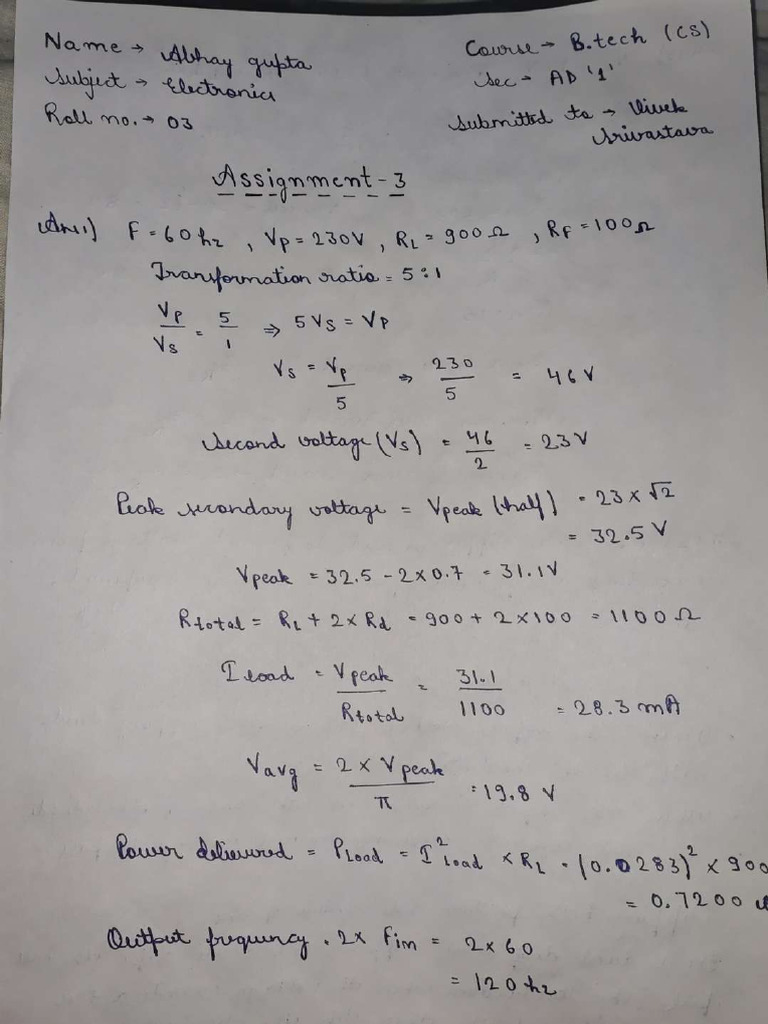 Name → Abhay gupta
Course → B.tech (CS)
Subject → Electronics
Sec → AD '1'
Roll no. → 03
Submitted to → Vivek
Srivastava
Assignment - 3
Ans1) F = 60 hz , Vp = 230V , RL = 900 Ω , RF = 100 Ω
Transformation ratio = 5:1
Vp/Vs = 5/1 ⇒ 5 Vs = Vp
Vs = Vp/5 ⇒ 230/5 = 46 V
Second voltage (Vs) = 46/2 = 23 V
Peak secondary voltage = Vpeak (half) = 23 × √2
= 32.5 V
Vpeak = 32.5 - 2 × 0.7 = 31.1V
Rtotal = RL + 2 × Rd = 900 + 2 × 100 = 1100 Ω
I load = Vpeak/Rtotal = 31.1/1100 = 28.3 mA
Vavg = 2 × Vpeak/π = 19.8 V
Power delieverd = PLoad = I²Load × RL = (0.0283)² × 900
= 0.7200
Output frequncy = 2 × Fim = 2 × 60
= 120 hz